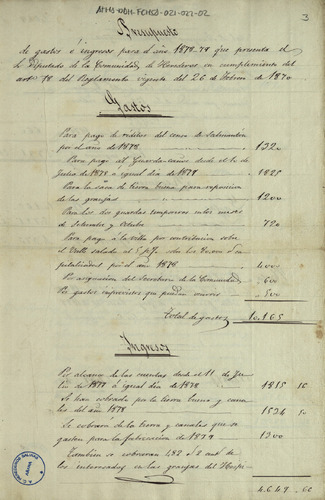 AMS-ODH-FCHSD-021-027-02
3
Presupuesto
de gastos é ingresos para el año 1878-79 que presenta el
Sr Diputado de la Comunidad de Herederos en cumplimiento del
artº 78 del Reglamento vigente del 26 de Febrero de 1870
Gastos
Para pago de réditos del censo de Salmantón
por el año de 1878 1320
Para pago al Guarda-caños desde el 1º de
Julio de 1878 a igual día de 1879 1825
Para la saca de tierra buena para reparación
de las granjas 1200
Para los dos guardas temporeros en los meses
de Setiembre y Octubre 720
Para pago a la villa por contribución sobre
el Valle salado al
por el año de 1878 4000
Por asignación del Secretario de la Comunidad 600
Por gastos imprevistos que puedan ocurrir 500
Total de gastos 10.165
Ingresos
Por alcance de las cuentas desde el 11 de Ju-
lio de 1877 á igual día de 1878 1815
Se han cobrado por la tierra buena y cana-
les del año 1878 1534
Se cobrarán de la tierra y canales que se
gasten para la fabricación de 1879 1300
Tambien se cobrarán 482
los interesados en las granjas del
4.649 60